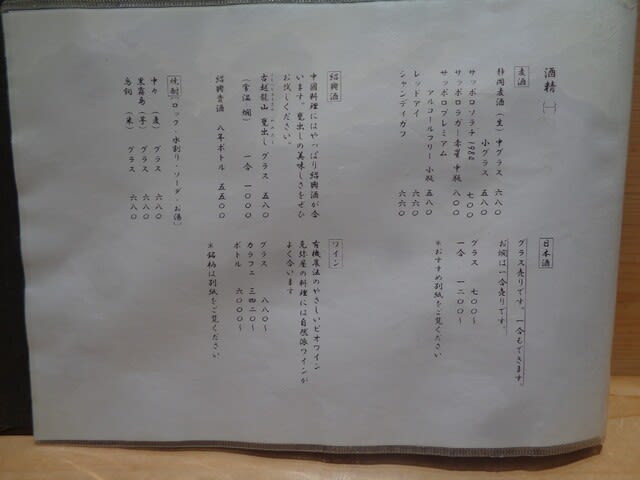 酒精(一)
麦酒
静岡麦酒(生)中グラス 六八〇
小グラス 五八〇
サッポロソラチ1984 七〇〇
サッポロラガー赤星 中瓶 八〇〇
サッポロプレミアム
アルコールフリー 小瓶 五八〇
レッドアイ 六六〇
シャンディガフ 六六〇
日本酒
グラス売りです。一合もできます。
お燗は一合売りです。
グラス 七〇〇〜
一合 一二〇〇〜
＊おすすめ別紙をご覧ください
紹興酒
中國料理にはやっぱり紹興酒が合
います。甕出しの美味しさをぜひ
お試しください。
古越龍山 甕出し グラス 五八〇
(常温 燗) 一合 一〇〇〇
紹興貴酒 八年ボトル 五五〇〇
ワイン
有機農法のやさしいビオワイン
の料理には自然派ワインが
よく合います
グラス 八八〇〜
カラフェ 三四二〇〜
ボトル 六〇〇〇〜
＊銘柄は別紙をご覧ください
焼酎(ロック・水割り・ソーダ・お湯)
中々 (麦) グラス 六八〇
黒霧島 (芋) グラス 六八〇
鳥飼 (米) グラス 六八〇